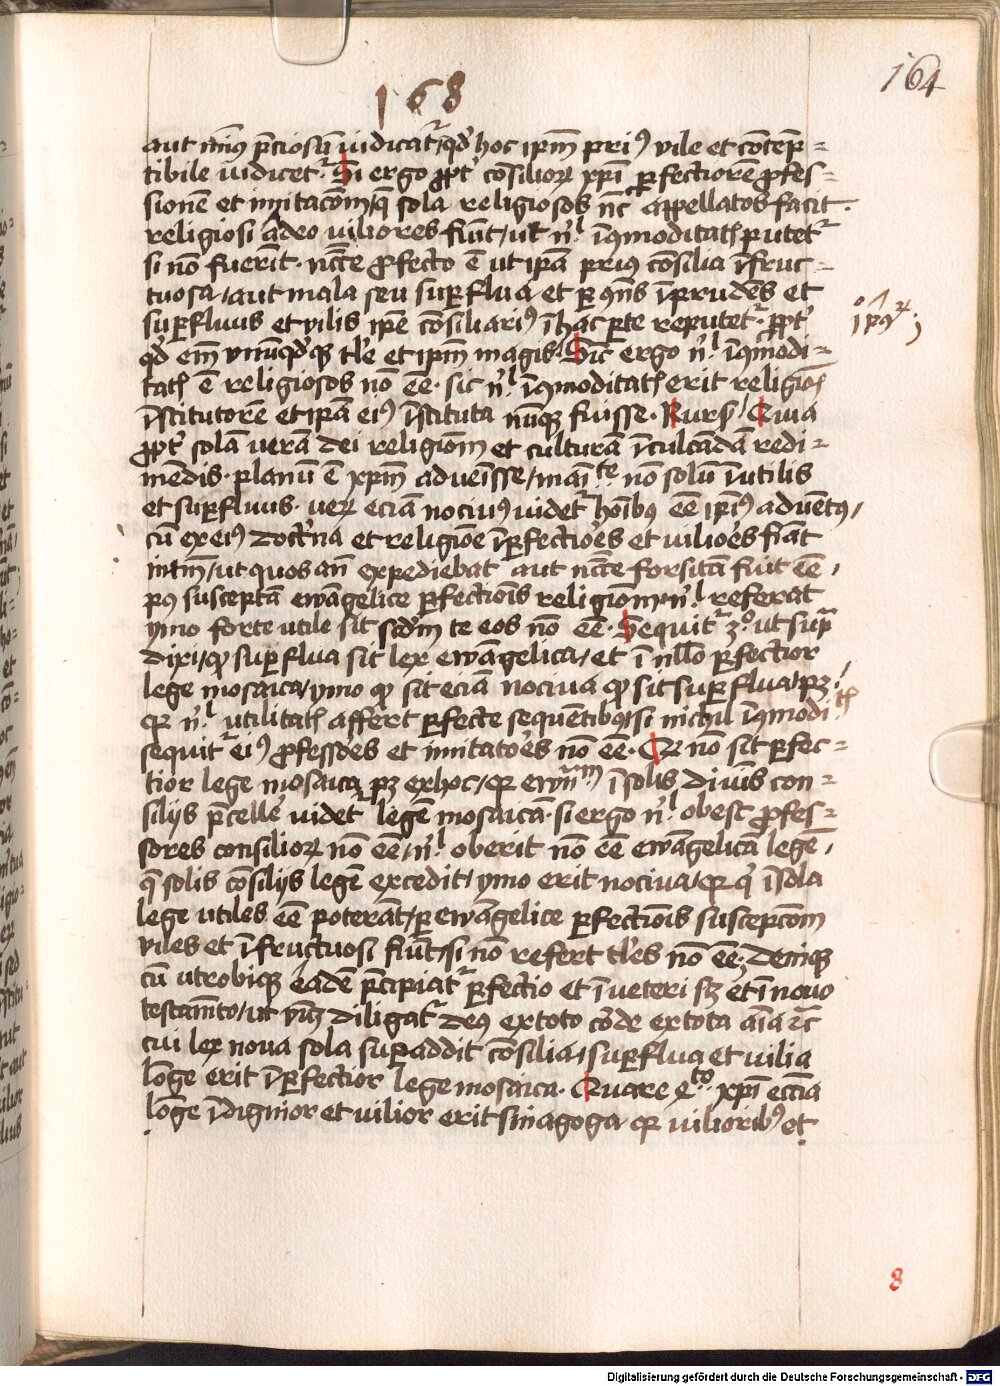 164
168
aut min9 p̄ciosū iudicat᷑ / qd' hoc ip̄m pri9 vile et cōtēp=
tibile iudicet᷑. Si ergo ꝓpt' cōsilioꝝ xp̄i ꝑfectiorē ꝓfes=
sionē et imitacōm / q̄ sola religiosos nc̄ appellatos facit.
religiosi adeo viliores fiūt / ut nl īqmoditatis putet᷑
si nō fuerīt. nc̄c̄e ꝓfecto ē ut ip̄a prius cōsilia īfruc=
tuosa / aut mala seu suꝑflua et ꝑ qn̄s īprudēs et
suꝑfluus et vilis ip̄e cōsiliari9 ī hac ꝑte reputet᷑. ꝓpt'
qd' em̄ vnūqd'qꝫ tl'e et ip̄m magis. Sic ergo nl īqmodi=
tatis ē religiosos nō eē. sic nl īqmoditatis erit religiōis
īstitutorē et ip̄a ei9 īstituta nūqꝫ fuisse. Rurs9 / Quia
ꝓpt' solā verā dei religiōm et culturā īculcādā redi=
mēdis. planū ē xp̄m advēisse / māite nō solū īutilis
et suꝑfluus. ueꝝ eciā nocivus videt᷑ hoībus eē ip̄ius adventus /
cū ex ei9 doct'na et religiōe īꝑfectio'es et vilio'es fiāt
int̄m / ut quos an̄ expediebat aut nc̄c̄e forsitā fuit eē,
pꝰ susceptā ewāgelice ꝑfectiōis religiōm. nl referat
ymo forte utile sit scd'm te eos nō eē. Sequit᷑ 3º ut sup̄
dixi / qꝫ suꝑflua sit lex ewāgelica / et ī nllo ꝑfectior
lege mosaica / ymo qꝫ sit eciā nociva qꝫ sit suꝑflua / pꝫ /
qꝛ nl utilitatis affert ꝑfecte sequētibus / si nichil īqmoditis
sequit᷑ ei9 ꝓfesso'es et imitato'es nō eē. Qꝛ nō sit ꝑfec=
tior lege mosaica pꝫ ex hoc / qꝛ ewm̄ ī solis diuīs con=
silijs p̄celle' videt᷑ legē mosaicā. si ergo nl obest ꝓfes=
sores consilioꝝ nō eē / nl oberit nō eē ewāgelicā legē,
q̄ solis cōsilijs legē excedit / ymo erit nociva / qꝛ q' ī sola
lege utiles eē poterāt / ꝑ ewāgelice ꝑfectiōis suscepcōm
viles et īfructuosi fiūt / si nō refert tl'es nō eē. Deniqꝫ
cū utrobiqꝫ eadē p̄cipiat᷑ ꝑfectio et ī ueteri scꝫ et ī novo
testam̄to / ut vꝫ diligat᷑ deus ex toto co'de ex tota aīa ꝛc̄
cui lex nova sola suꝑaddit cōsilia / suꝑflua et vilia
lōge erit īꝑfectior lege mosaica. Quare xp̄i eccīa
lōge īdignior et vilior erit sinagoga. qꝛ vilioribus et
8
Digitalisierung gefördert durch die Deutsche Forschungsgemeinschaft - DFG